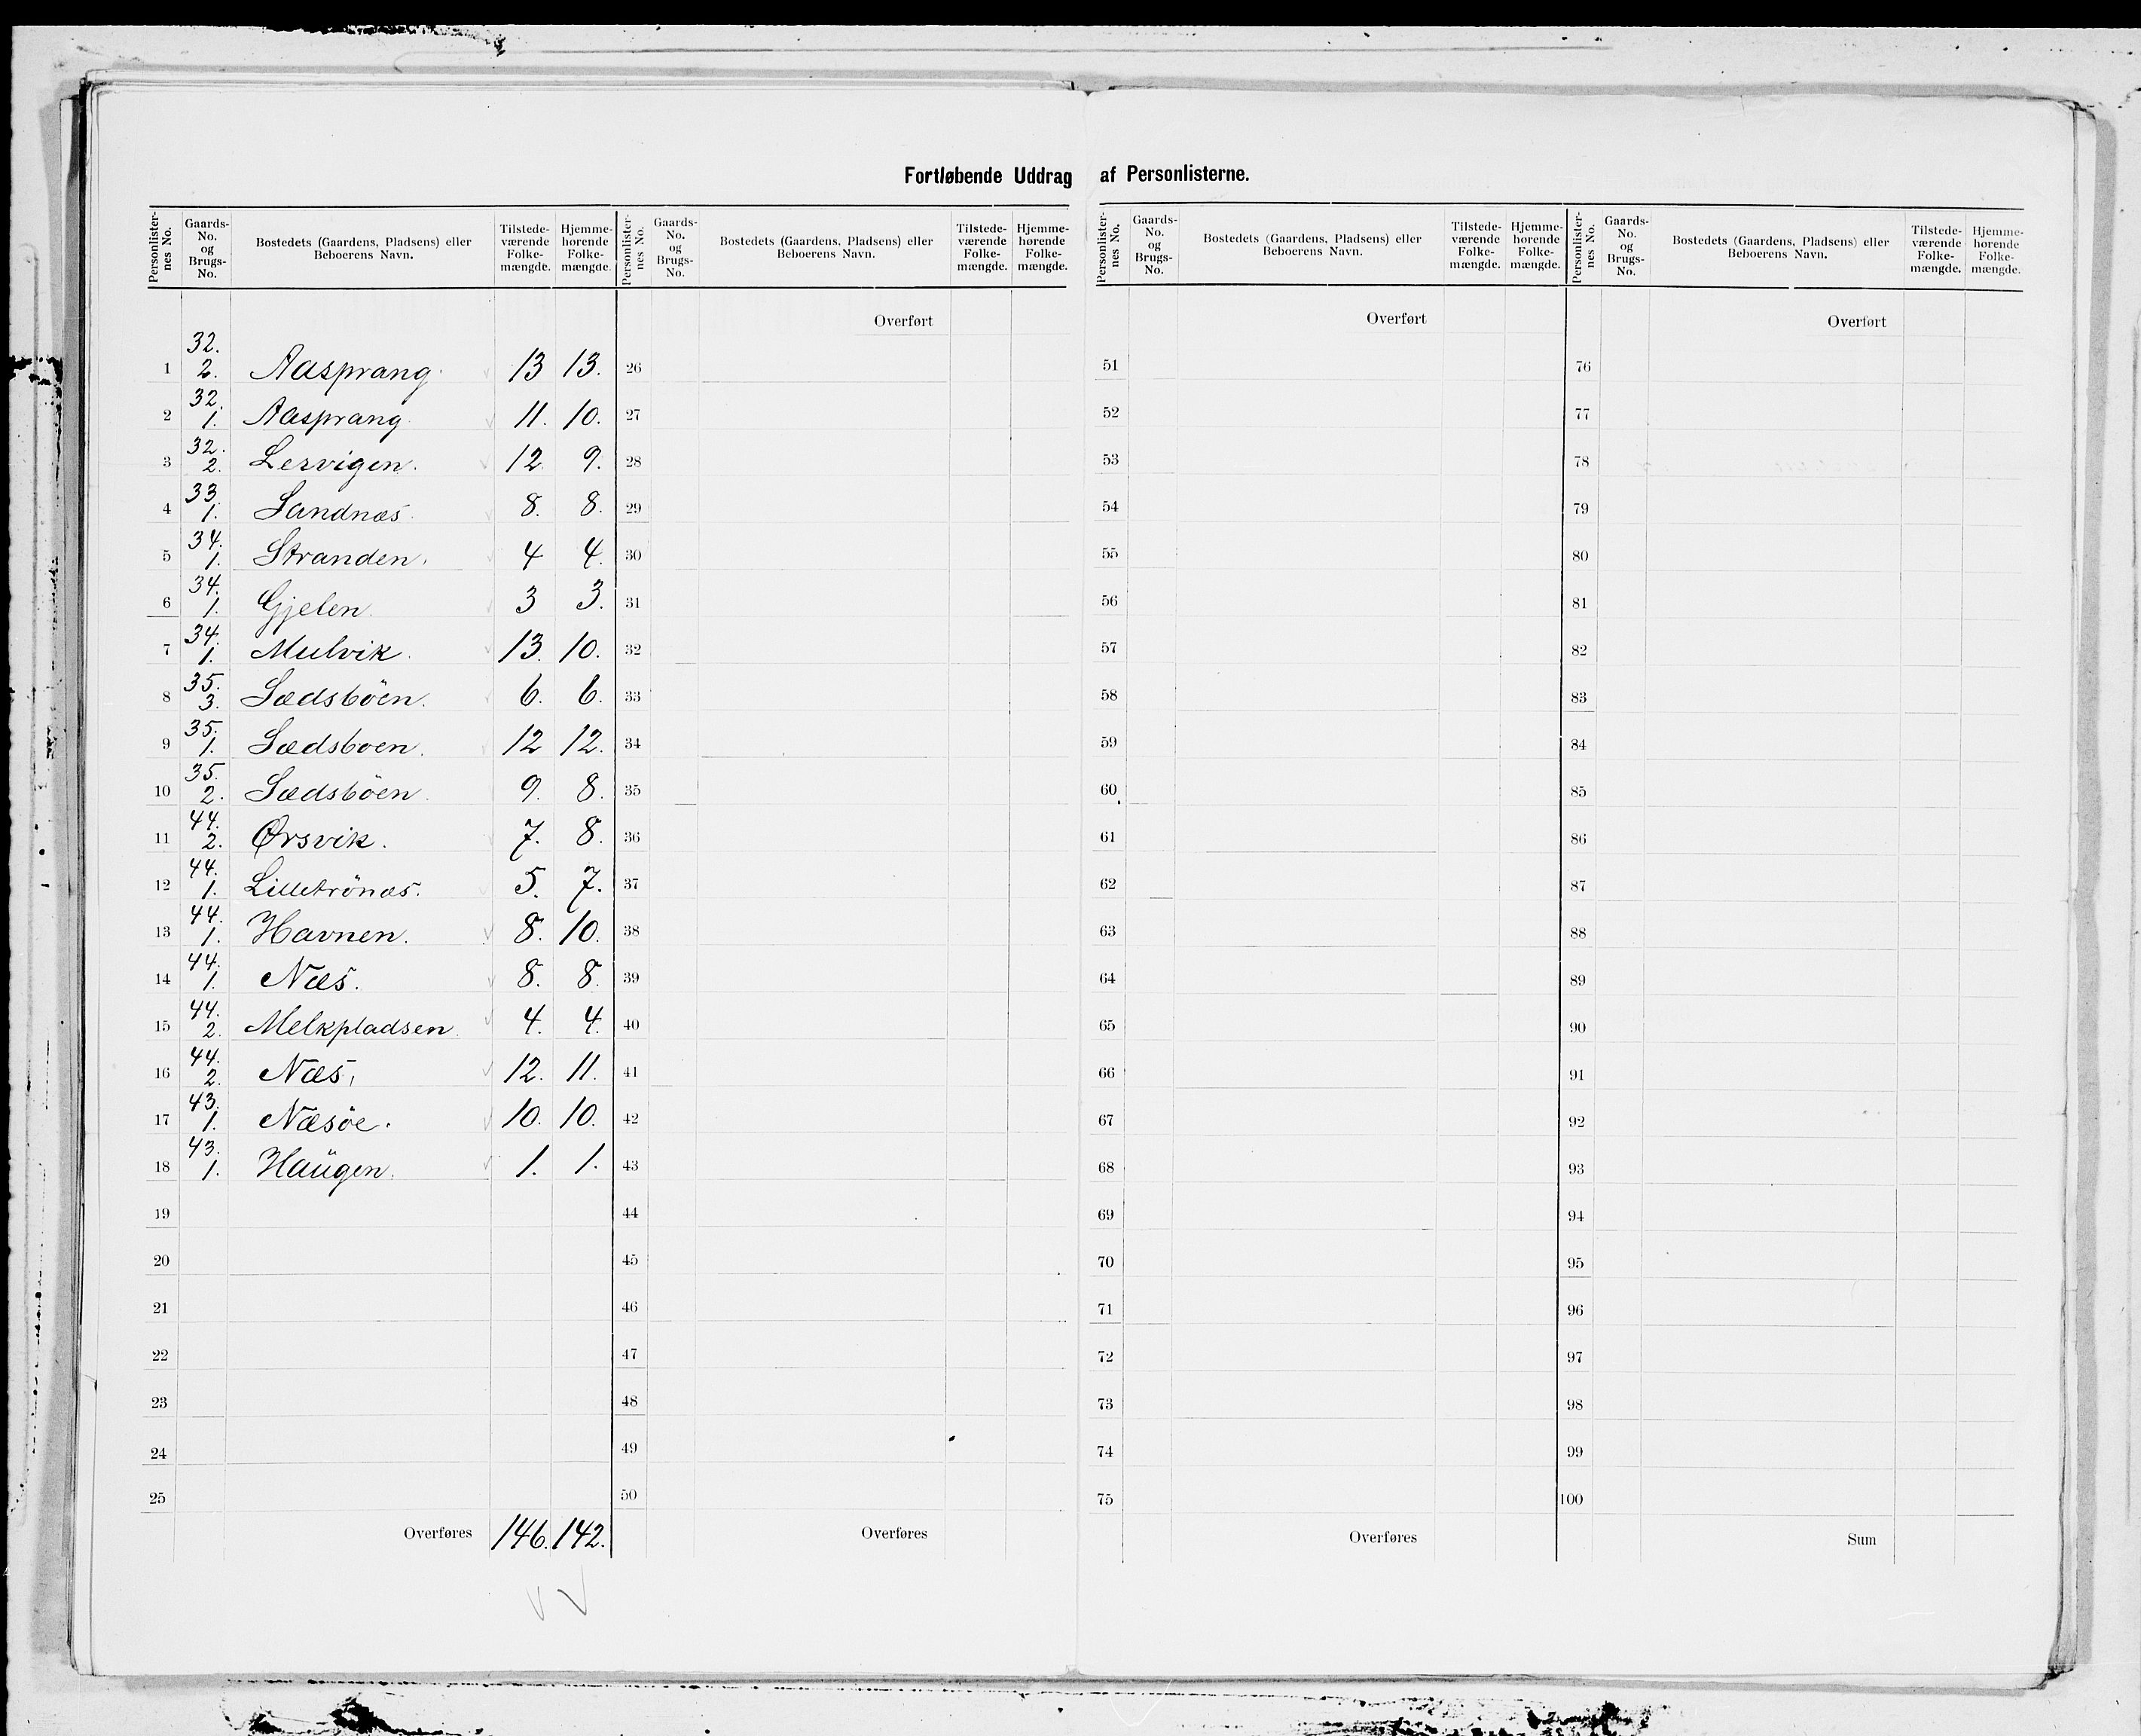 Fortløbende Uddrag af Personlisterne.
Personlister-nes No. Gaards-No. og Brugs-No. Bostedets (Gaardens, Pladsens) eller Beboerens Navn. Tilstede-værende Folke-mængde. Hjemme-hørende Folke-mængde. Personlister-nes No. Gaards-No. og Brugs-No. Bostedets (Gaardens, Pladsens) eller Beboerens Navn. Tilstede-værende Folke-mængde. Hjemme-hørende Folke-mængde. Personlister-nes No. Gaards-No. og Brugs-No. Bostedets (Gaardens, Pladsens) eller Beboerens Navn. Tilstede-værende Folke-mængde. Hjemme-hørende Folke-mængde. Personlister-nes No. Gaards-No. og Brugs-No. Bostedets (Gaardens, Pladsens) eller Beboerens Navn. Tilstede-værende Folke-mængde. Hjemme-hørende Folke-mængde.
Overført Overført Overført
1 32. 2. Aasprang. 13 13. 26 51 76
2 32. 1. Aasprang. 11. 10. 27 52 77
3 32. 2. Lervigen. 12. 9. 28 53 78
4 33. 1. Sandnæs. 8. 8. 29 54 79
5 34. 1. Stranden. 4 4. 30 55 80
6 34. 1. Gjelen. 3 3. 31 56 81
7 34. 1. Mulvik. 13. 10. 32 57 82
8 35. 3. Sædsböen. 6. 6. 33 58 83
9 35. 1. Sædsboen. 12 12. 34 59 84
10 35. 2. Sædsböen. 9. 8. 35 60 85
11 44. 2. Ørsvik. 7. 8. 36 61 86
12 44. 1. Lilletrönæs. 5. 7. 37 62 87
13 44. 1. Havnen. 8. 10. 38 63 88
14 44. 1. Næs. 8. 8. 39 64 89
15 44. 2. Melkpladsen. 4. 4. 40 65 90
16 44. 2. Næs, 12. 11. 41 66 91
17 43. 1. Næsöe. 10. 10. 42 67 92
18 43. 1. Haügen. 1. 1. 43 68 93
19 44 69 94
20 45 70 95
21 46 71 96
22 47 72 97
23 48 73 98
24 49 74 99
25 50 75 100
Overføres 146. 142. Overføres Overføres Sum